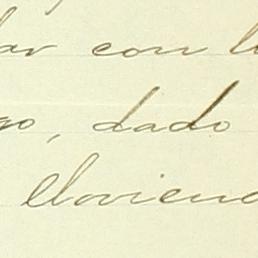 ar con l
go, dado
lloviend